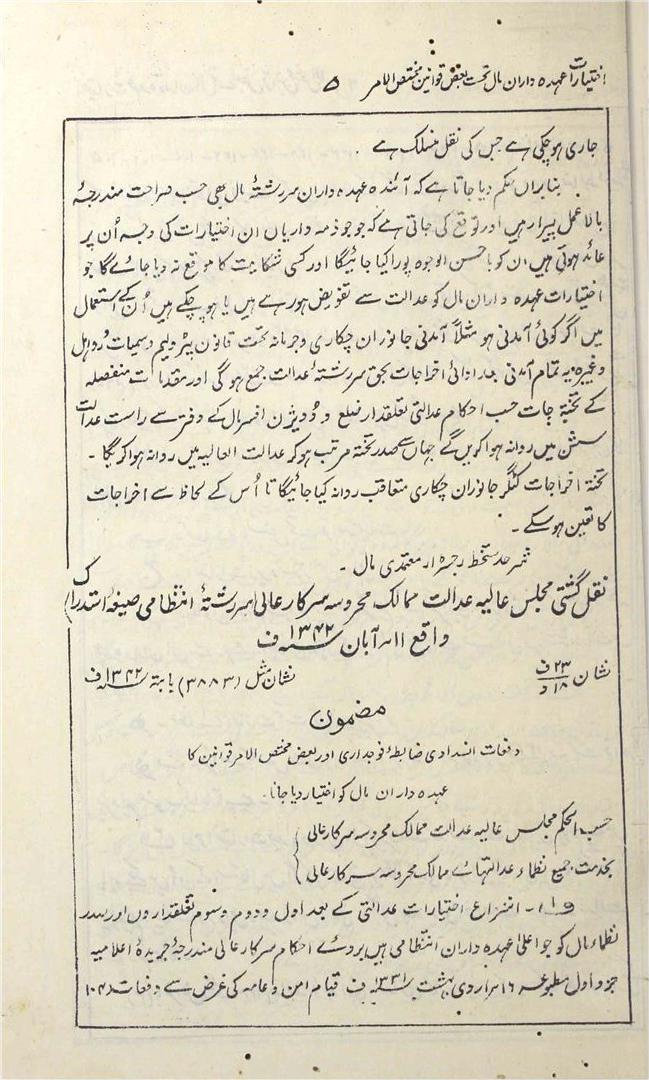 اختیارات عہدہ داران مال تحت بعض قوانین مختص الامر ۵
جاری ہوچکی ہے جس کی نقل منسلک ہے ۔
بنا براں حکم دیا جاتا ہے کہ آئندہ عہدہ داران سررشتۂ مال بھی حسب صراحت مندرجۂ
بالا عمل پیرا رہیں اور توقع کی جاتی ہے کہ جو جو ذمہ داریاں ان اختیارات کی وجہ اُن پر
عائد ہوتی ہیں ان کو باحسن الوجوہ پورا کیا جائیگا اور کسی شکایت کا موقع نہ دیا جائے گا جو
اختیارات عہدہ داران مال کو عدالت سے تفویض ہورہے ہیں یا ہوچکے ہیں اُن کے استعمال
میں اگر کوئی آمدنی ہو مثلاً آمدنی جانوران چکاری وجرمانہ تحت قانون پٹرولیم وسمیات و
وغیرہ یہ تمام آمدنی بعد ادائی اخراجات بحق سررشتۂ عدالت جمع ہوگی اور مقدمات منفصلہ
کے تختہ جات حسب احکام عدالتی تعلقدار ضلع و ڈویژن افسر مال کے دفتر سے راست عدالت
سشن میں روانہ ہوا کریں گے جہاں سے صدر تختہ مرتب ہوکر عدالت العالیہ میں روانہ ہوا کریگا ۔
تختہ اخراجات جانوران چکاری متعاقب روانہ کیا جائیگا تا اُس کے لحاظ سے اخراجات
کا تعین ہوسکے ۔
شرحد ستخط رجسٹرار معتمدی مال ۔
نقل گشتی مجلس عالیہ عدالت ممالک محروسہ سرکار عالی (سررشتۂ انتظامی صیغۂ استدراک)
واقع ۱۱؍ آبان ۱۳۴۲ ف
نشان ۲۳ ف / ۱۸ د نشان مثل (۳۸۸۳) بابتہ ۱۳۴۲ ف
مضمون
دفعات انسدادی ضابطۂ فوجداری اور بعض مختص الامر قوانین کا
عہدہ داران مال کو اختیار دیا جانا۔
حسب الحکم مجلس عالیہ عدالت ممالک محروسہ سرکار عالی
بخدمت جمیع نظماء عدالتہائے ممالک محروسہ سرکار عالی
انتزاع اختیارات عدالتی کے بعد اول و دوم و سوم تعلقداروں اور صدر
نظماء مال کو جو اعلیٰ عہدہ داران انتظامی ہیں بروئے احکام سرکار عالی مندرجۂ جریدۂ اعلامیہ
جزو اول مطبوعہ ۱۶؍ اردی بہشت ۱۳۳۱ ف قیام امن و عامہ کی غرض سے دفعات (۱۰۴